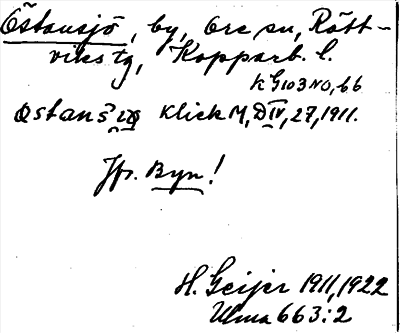 Östansjö, by, Ore sn, Rätt-
viks tg, Kopparb. l.
K G103 NO, 66
Klick M, D IV, 27, 1911.
Jfr. Byn!
H. Geijer 1911, 1922
Ulma 663:2